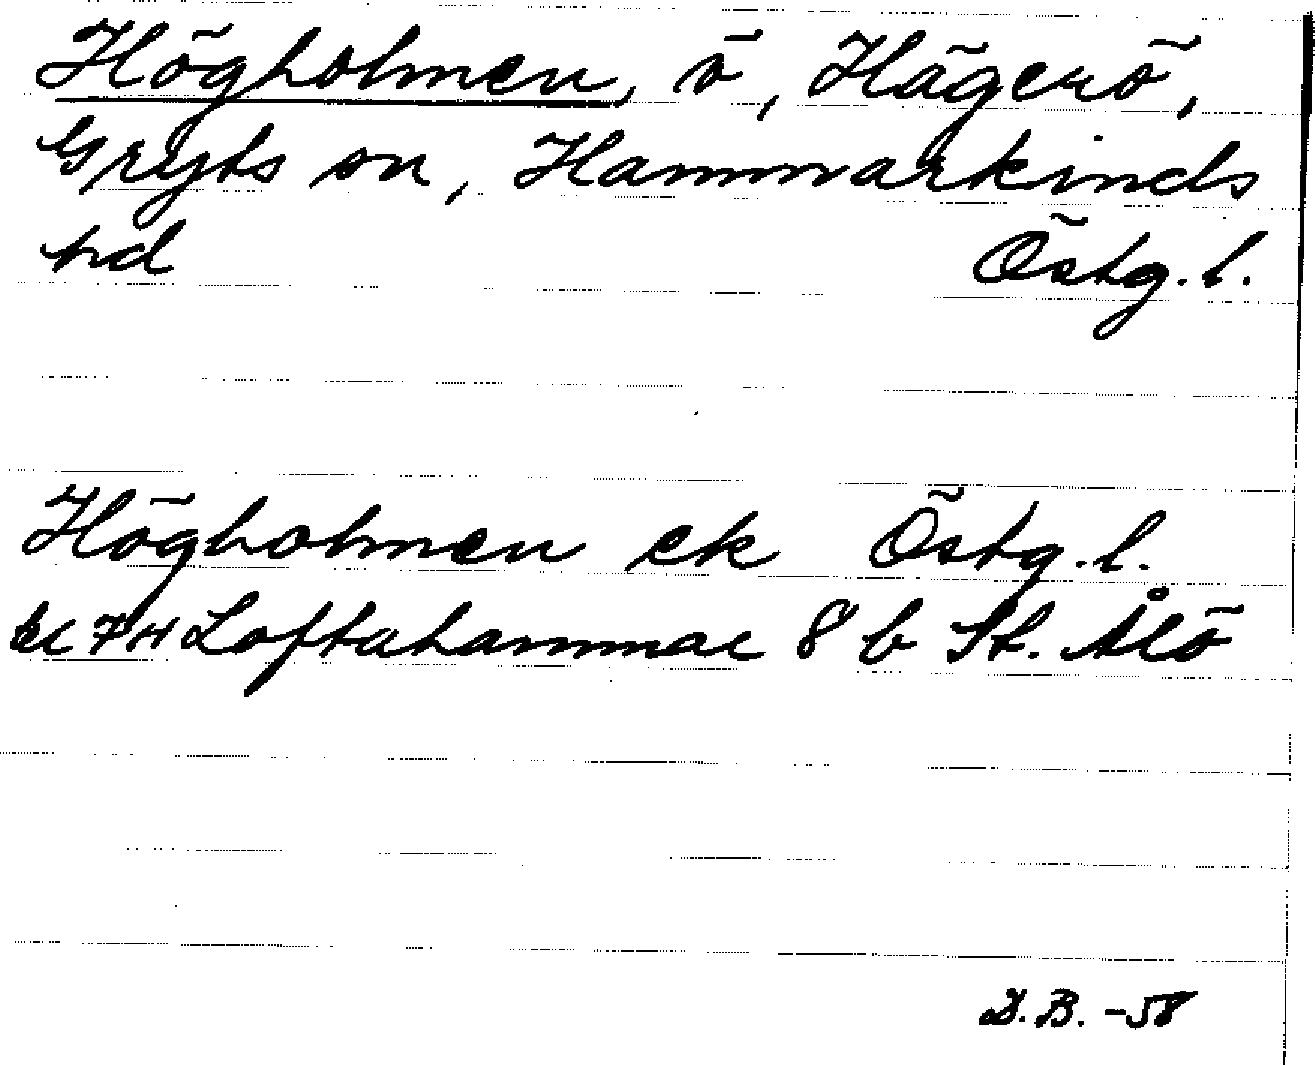 Högholmen, ö, Hägerö,
Gryts sn, Hammarkinds
hd Östg. l.
Högholmen ek Östg. l.
bl 7H Loftahammar 8 b St. Ålö
D.B. -58